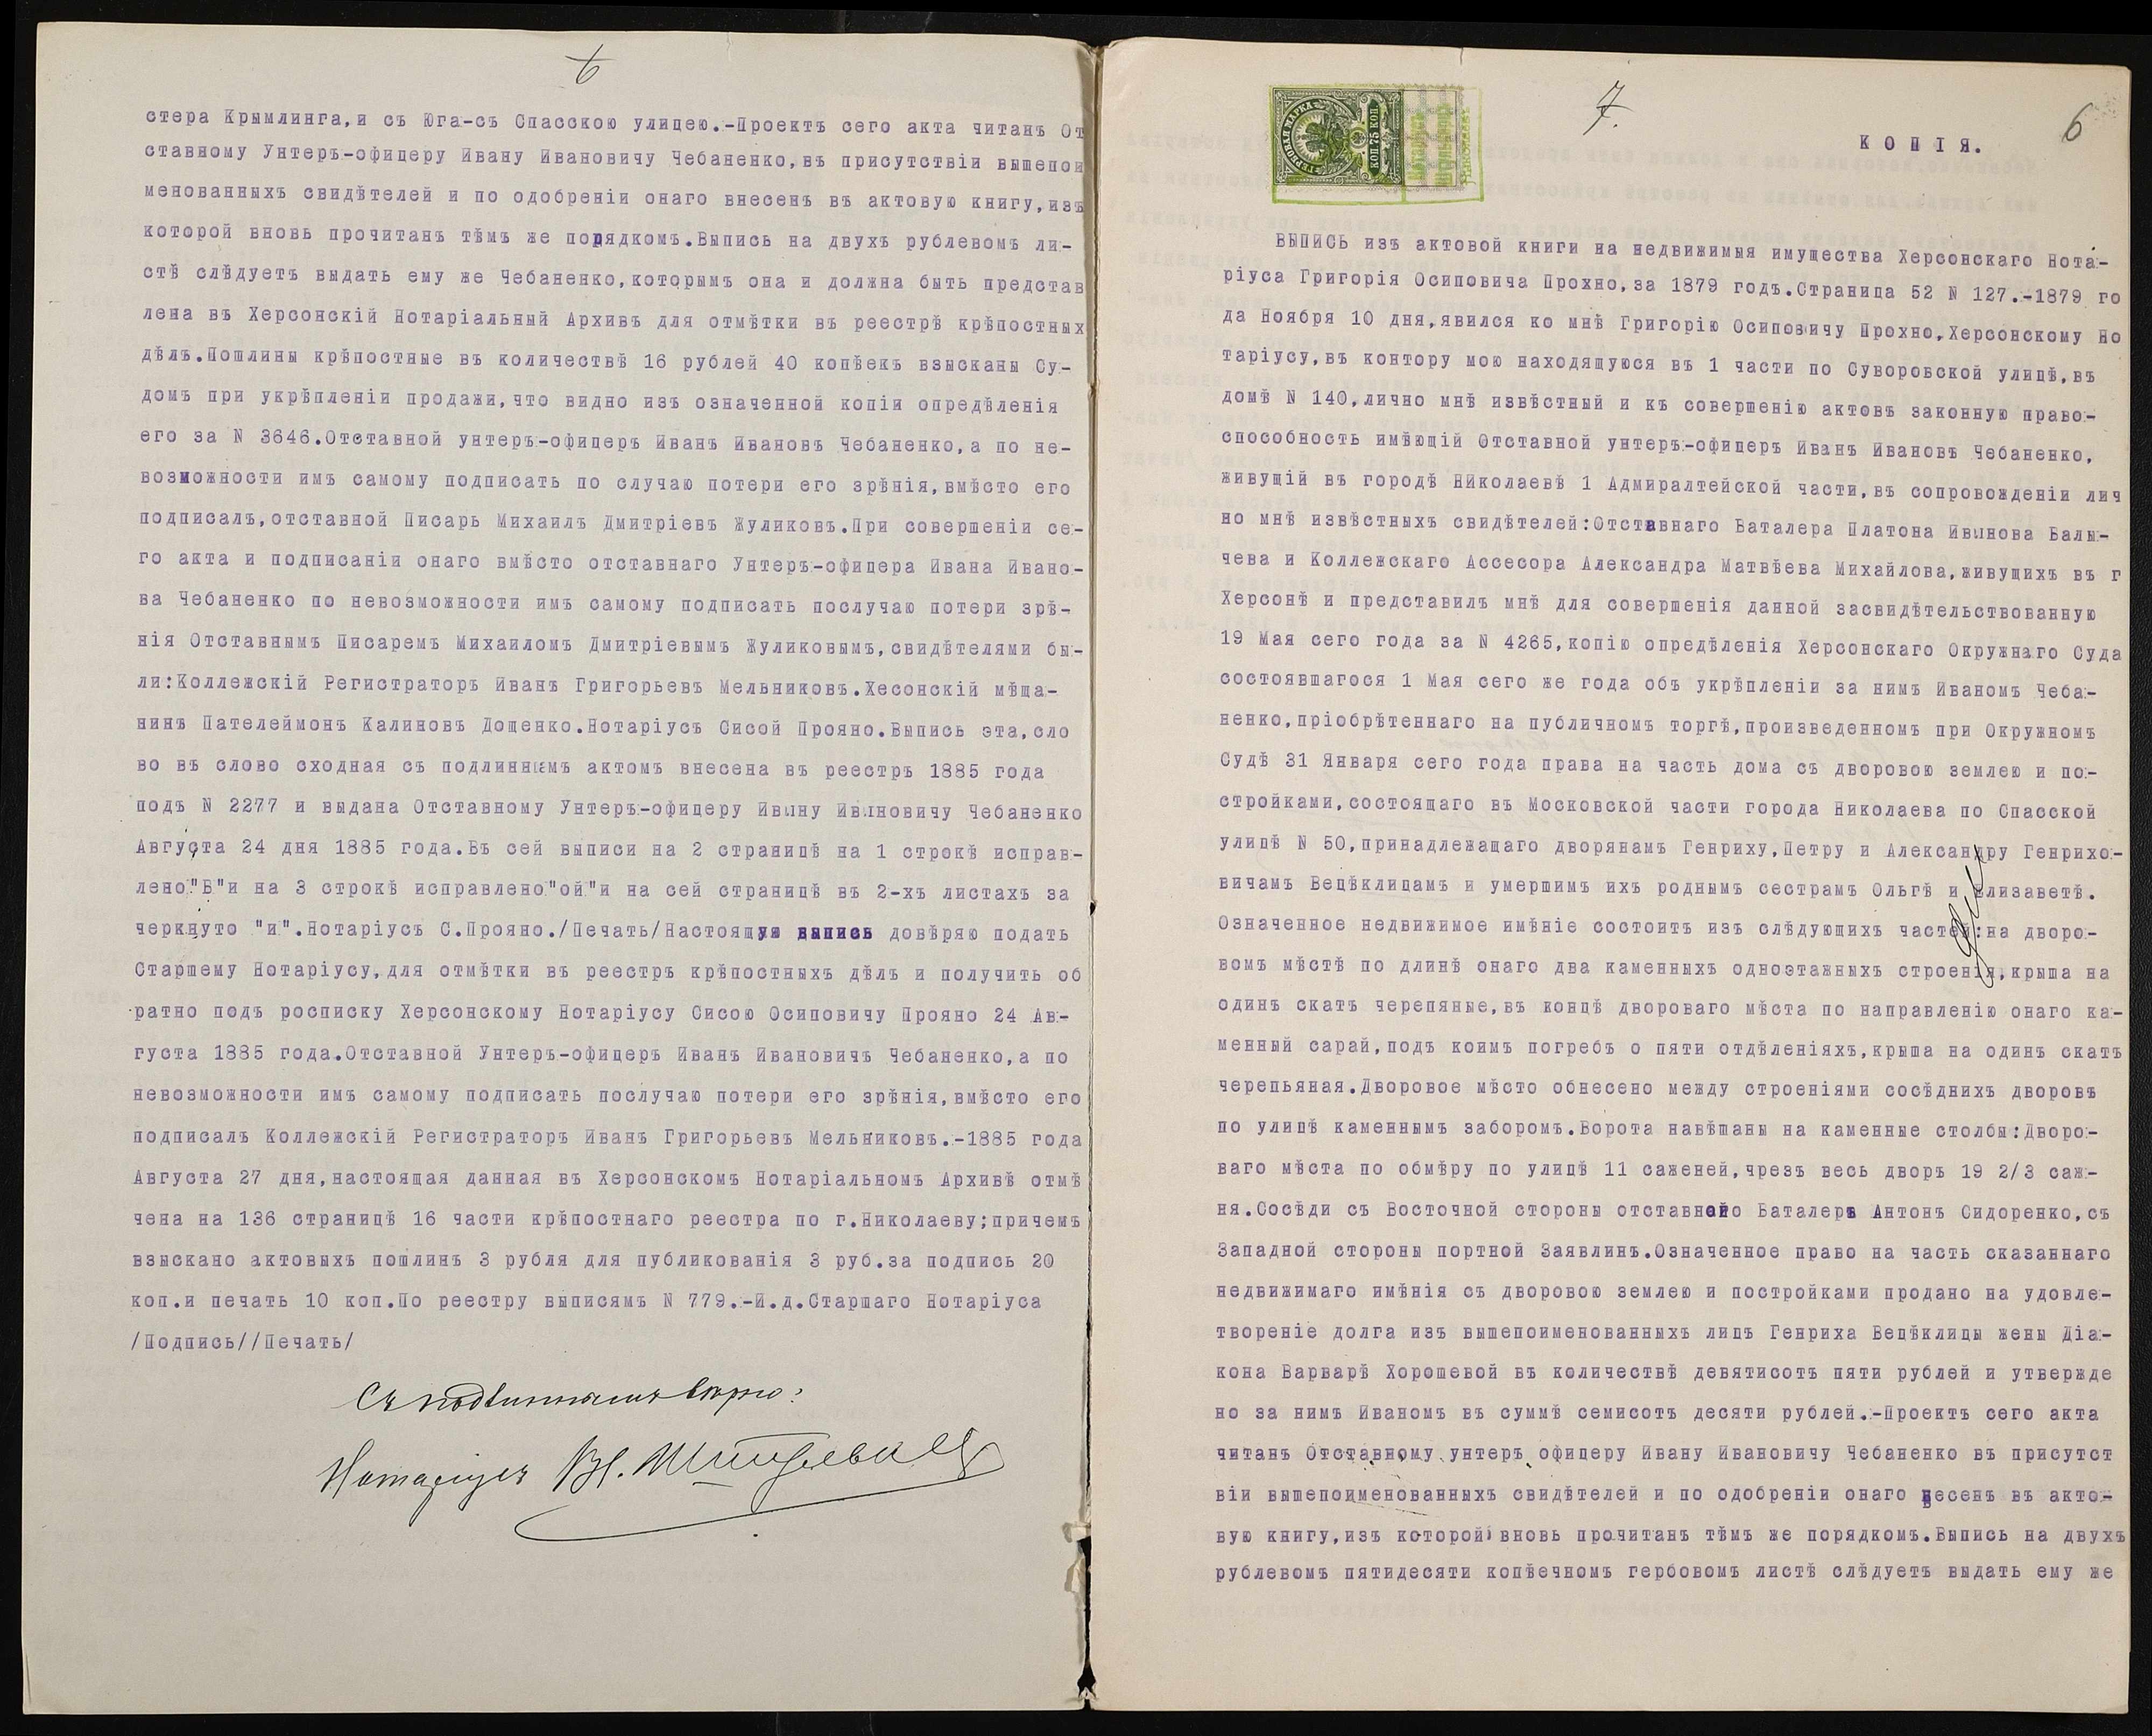 6
стера Крымлинга,и съ Юга-съ Спасскою улицею.-Проектъ сего акта читанъ От
ставному Унтеръ-офицеру Ивану Ивановичу Чебаненко,въ присутствіи вышепои
менованныхъ свидѣтелей и по одобреніи онаго внесенъ въ актовую книгу,изъ
которой вновь прочитанъ тѣмъ же порядкомъ.Выпись на двухъ рублевомъ ли-
стѣ слѣдуетъ выдать ему же Чебаненко,которымъ она и должна быть представ
лена въ Херсонскій Нотаріальный Архивъ для отмѣтки въ реестрѣ крѣпостныхъ
дѣлъ.Пошлины крѣпостные въ количествѣ 16 рублей 40 копѣекъ взысканы Су-
домъ при укрѣпленіи продажи,что видно изъ означенной копіи опредѣленія
его за N 3646.Отставной унтеръ-офицеръ Иванъ Ивановъ Чебаненко,а по не-
возможности имъ самому подписать по случаю потери его зрѣнія,вмѣсто его
подписалъ,отставной Писарь Михаилъ Дмитріевъ Жуликовъ.При совершеніи се-
го акта и подписаніи онаго вмѣсто отставнаго Унтеръ-офицера Ивана Ивано-
ва Чебаненко по невозможности имъ самому подписать послучаю потери зрѣ-
нія Отставнымъ Писаремъ Михаиломъ Дмитріевымъ Жуликовымъ,свидѣтелями бы-
ли:Коллежскій Регистраторъ Иванъ Григорьевъ Мельниковъ.Хесонскій мѣща-
нинъ Пателеймонъ Калиновъ Дощенко.Нотаріусъ Сисой Прояно.Выпись эта,сло
во въ слово сходная съ подлиннымъ актомъ внесена въ реестръ 1885 года
подъ N 2277 и выдана Отставному Унтеръ-офицеру Ивану Ивановичу Чебаненко
Августа 24 дня 1885 года.Въ сей выписи на 2 страницѣ на 1 строкѣ исправ-
лено"В"и на 3 строкѣ исправлено"ой"и на сей страницѣ въ 2-хъ листахъ за
черкнуто "и".Нотаріусъ С.Прояно./Печать/Настоящую выпись довѣряю подать
Старшему Нотаріусу,для отмѣтки въ реестръ крѣпостныхъ дѣлъ и получить об
ратно подъ росписку Херсонскому Нотаріусу Сисою Осиповичу Прояно 24 Ав-
густа 1885 года.Отставной Унтеръ-офицеръ Иванъ Ивановичъ Чебаненко,а по
невозможности имъ самому подписать послучаю потери его зрѣнія,вмѣсто его
подписалъ Коллежскій Регистраторъ Иванъ Григорьевъ Мельниковъ.-1885 года
Августа 27 дня,настоящая данная въ Херсонскомъ Нотаріальномъ Архивѣ отмѣ
чена на 136 страницѣ 16 части крѣпостнаго реестра по г.Николаеву;причемъ
взыскано актовыхъ пошлинъ 3 рубля для публикованія 3 руб.за подпись 20
коп.и печать 10 коп.По реестру выписямъ N 779.-И.д.Старшаго Нотаріуса
/Подпись//Печать/
Съ подлиннымъ вѣрно:
Нотаріусъ
7.
6
ГЕРБОВАЯ МАРКА
75 КОП
КОПІЯ.
ВЫПИСЬ изъ актовой книги на недвижимыя имущества Херсонскаго Нота-
ріуса Григорія Осиповича Прохно,за 1879 годъ.Страница 52 N 127.-1879 го
да Ноября 10 дня,явился ко мнѣ Григорію Осиповичу Прохно,Херсонскому Но
таріусу,въ контору мою находящуюся въ 1 части по Суворовской улицѣ,въ
домѣ N 140,лично мнѣ извѣстный и къ совершенію актовъ законную право-
способность имѣющій Отставной унтеръ-офицеръ Иванъ Ивановъ Чебаненко,
живущій въ городѣ НИколаевѣ 1 Адмиралтейской части,въ сопровожденіи лич
но мнѣ извѣстныхъ свидѣтелей:Отставнаго Баталера Платона Иванова Балы-
чева и Коллежскаго Ассесора Александра Матвѣева Михайлова,живущихъ въ г
Херсонѣ и представилъ мнѣ для совершенія данной засвидѣтельствованную
19 Мая сего года за N 4265,копію опредѣленія Херсонскаго Окружнаго Суда
состоявшагося 1 Мая сего же года объ укрѣпленіи за нимъ Иваномъ Чеба-
ненко,пріобрѣтеннаго на публичномъ торгѣ,произведенномъ при Окружномъ
Судѣ 31 Января сего года права на часть дома съ дворовою землею и по-
стройками,состоящаго въ Московской части города Николаева по Спасской
улицѣ N 50,принадлежащаго дворянамъ Генриху,Петру и Александру Генрихо-
вичамъ Вецѣклицамъ и умершимъ ихъ роднымъ сестрамъ Ольгѣ и Елизаветѣ.
Означенное недвижимое имѣніе состоитъ изъ слѣдующихъ частей:на дворо-
вомъ мѣстѣ по длинѣ онаго два каменныхъ одноэтажныхъ строенія,крыша на
одинъ скатъ черепяные,въ концѣ двороваго мѣста по направленію онаго ка-
менный сарай,подъ коимъ погребъ о пяти отдѣленіяхъ,крыша на одинъ скатъ
черепьяная.Дворовое мѣсто обнесено между строеніями сосѣднихъ дворовъ
по улицѣ каменнымъ заборомъ.Ворота навѣшаны на каменные столбы:Дворо-
ваго мѣста по обмѣру по улицѣ 11 саженей,чрезъ весь дворъ 19 2/3 саж-
ня.Сосѣди съ Восточной стороны отставной Баталеръ Антонъ Сидоренко,съ
Западной стороны портной Заявлинъ.Означенное право на часть сказаннаго
недвижимаго имѣнія съ дворовою землею и постройками продано на удовле-
твореніе долга изъ вышепоименованныхъ лицъ Генриха Вецѣклицы жены Діа-
кона Варварѣ Хорошевой въ количествѣ девятисотъ пяти рублей и утвержде
но за нимъ Иваномъ въ суммѣ семисотъ десяти рублей.-Проектъ сего акта
читанъ Отставному унтеръ офицеру Ивану Ивановичу Чебаненко въ присутст
віи вышепоименованныхъ свидѣтелей и по одобреніи онаго внесенъ въ акто-
вую книгу,изъ которой вновь прочитанъ тѣмъ же порядкомъ.Выпись на двухъ
рублевомъ пятидесяти копѣечномъ гербовомъ листѣ слѣдуетъ выдать ему же